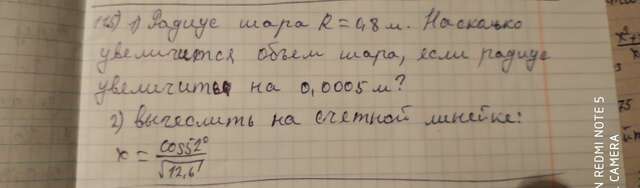 125) 1) Радиус шара R = 0,8 м. Насколько
увеличится объем шара, если радиус
увеличить на 0,0005 м?
2) вычеслить на счетной линейке:
x = cos52° / √12,6
x²+
75
N REDMI NOTE 5
CAMERA